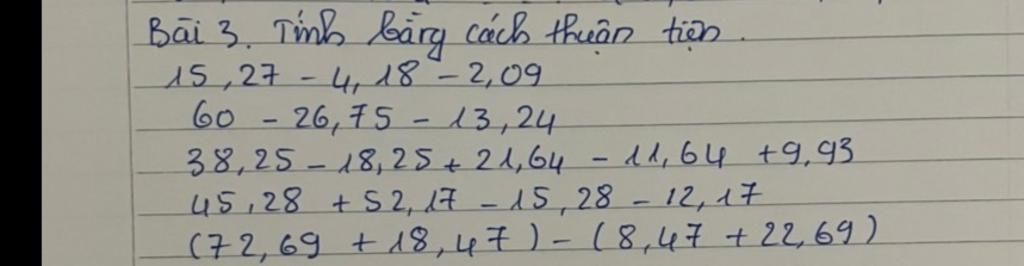 Bài 3. Tính bằng cách thuận tiện.
15,27 - 4,18 - 2,09
60 - 26,75 - 13,24
38,25 - 18,25 + 21,64 - 11,64 + 9,93
45,28 + 52,17 - 15,28 - 12,17
(72,69 + 18,47) - (8,47 + 22,69)